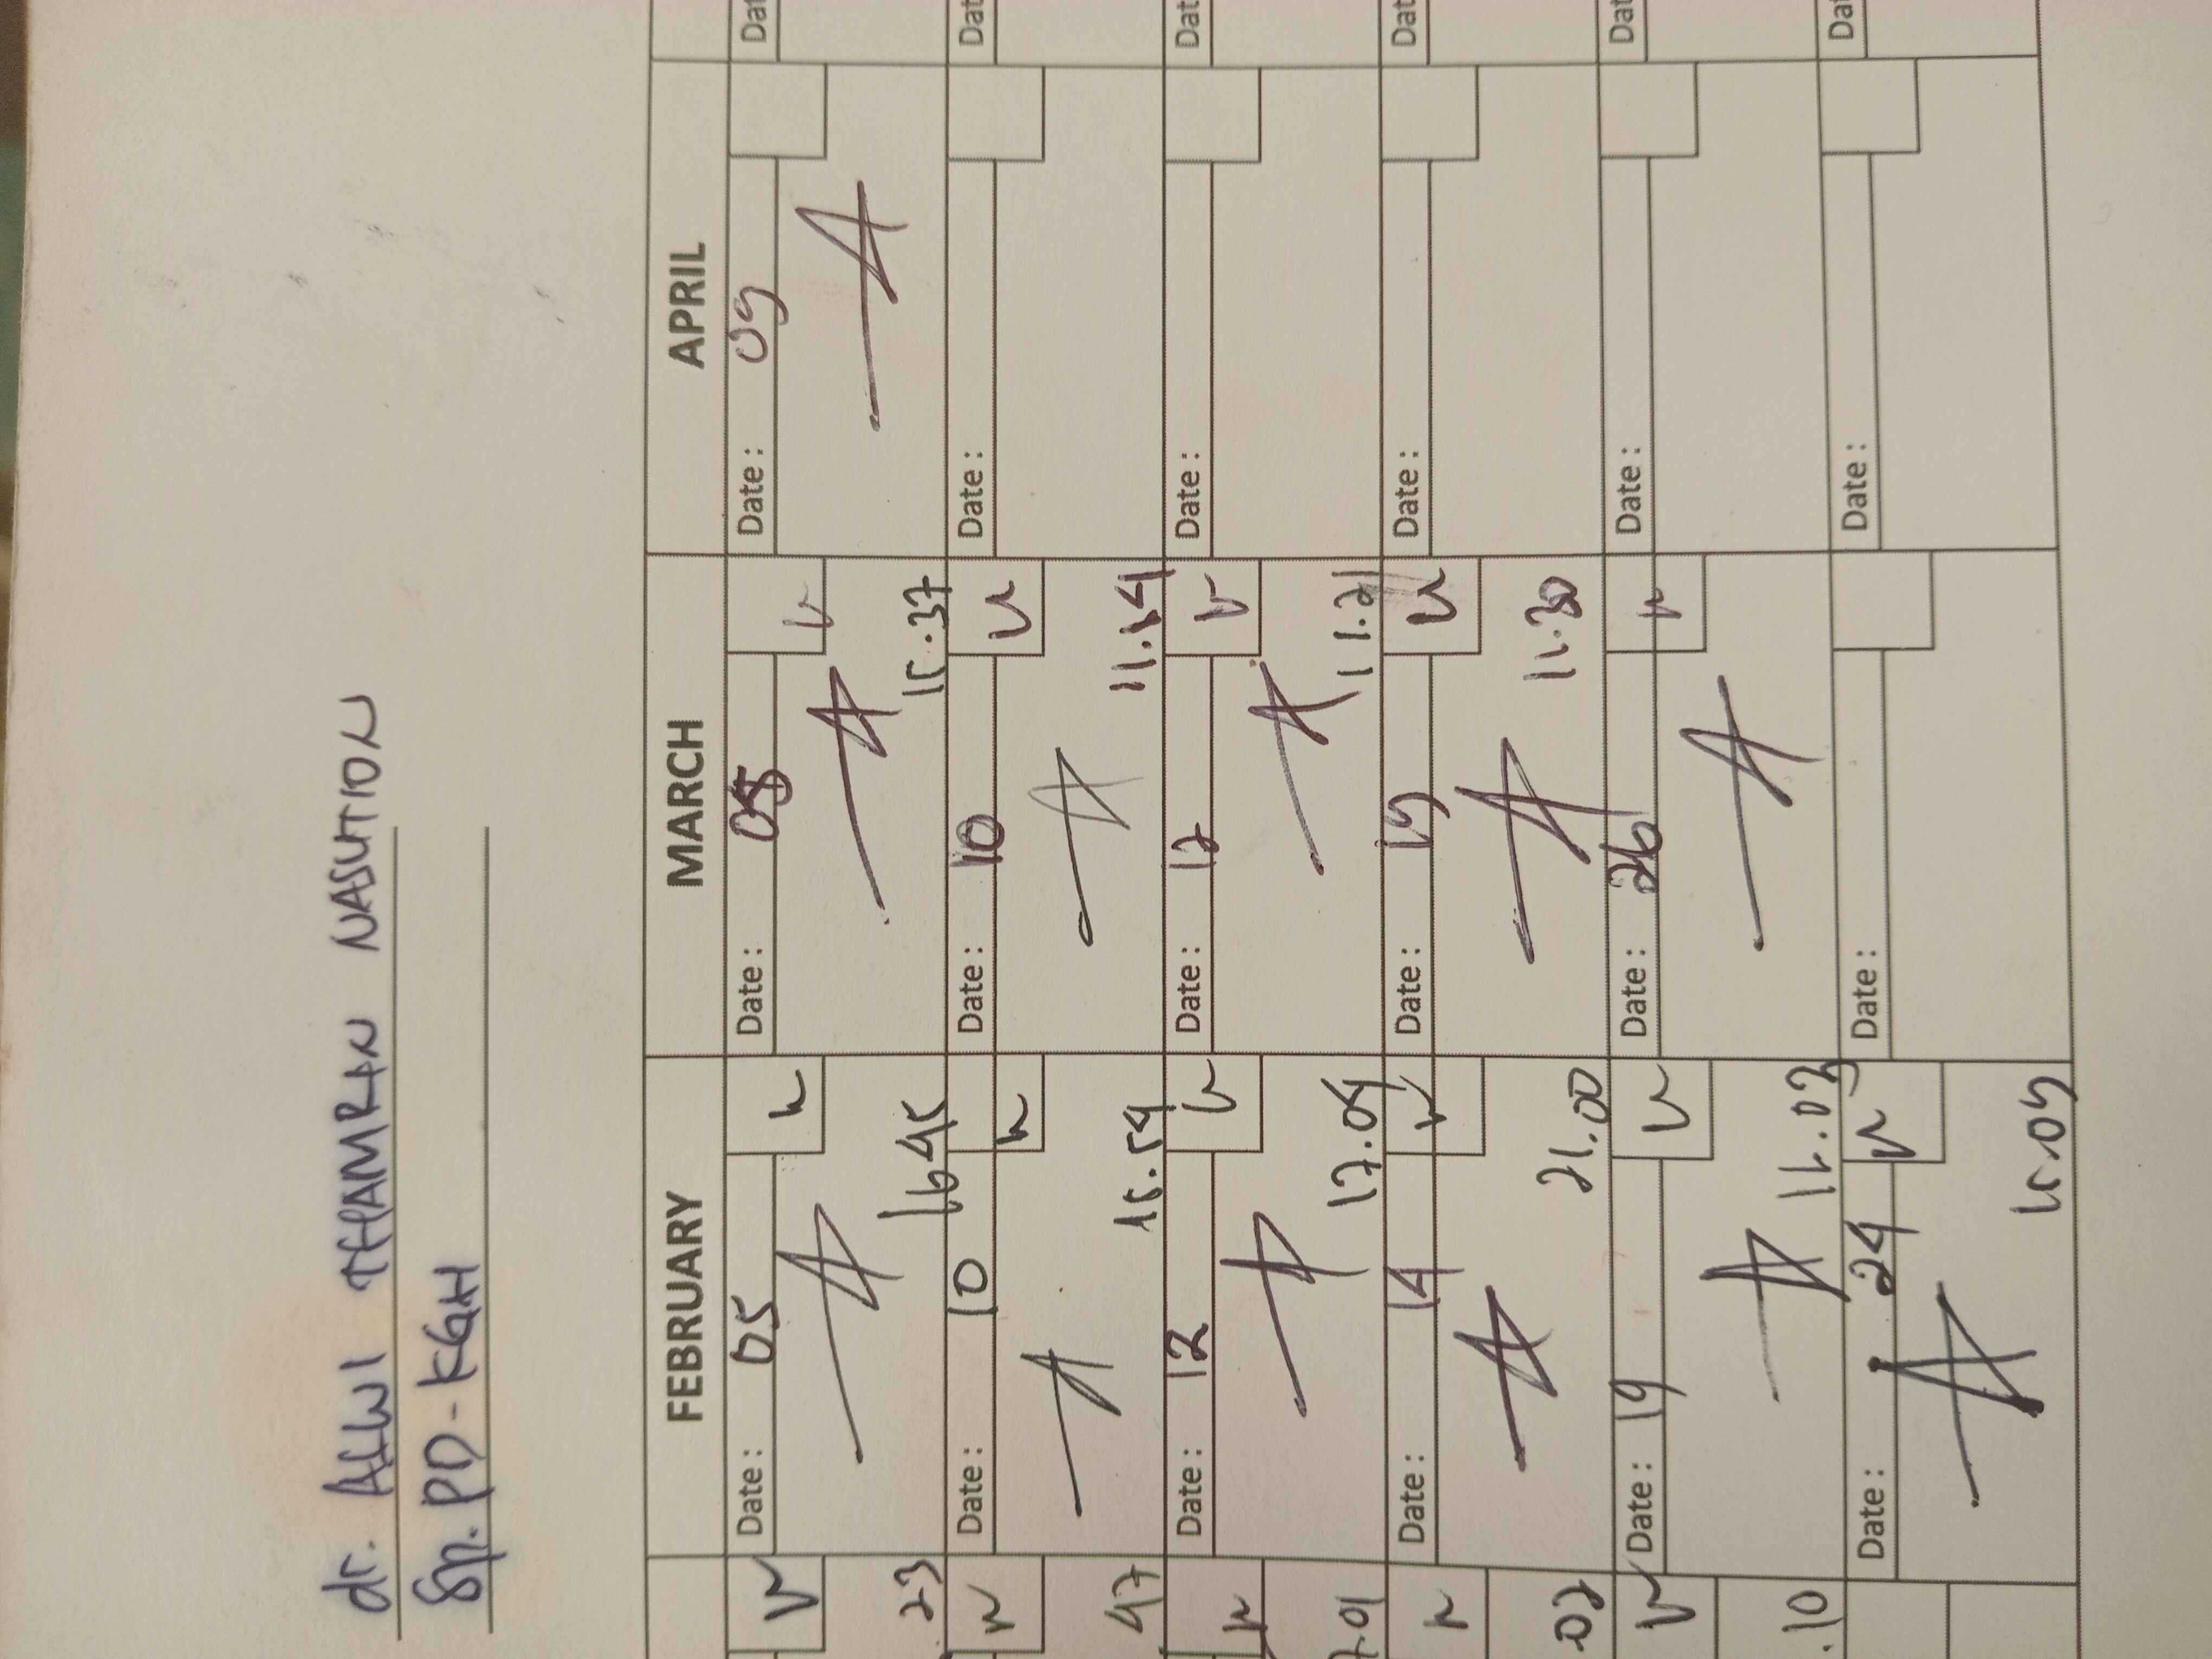 dr. ALWI THAMRIN NASUTION
Sp. PD - KGH
FEBRUARY MARCH APRIL
Date : 05 Date : 05 Date : 09 Dat
23 1645 15.37
Date : 10 Date : 10 Date : Dat
47 15.54 11.54
Date : 12 Date : 12 Date : Dat
7.01 17.04 11.21
Date : 14 Date : 19 Date : Dat
.02 21.00 11.30
Date : 19 Date : 26 Date : Dat
.10 11.03
Date : 24 Date : Date : Dat
15.09